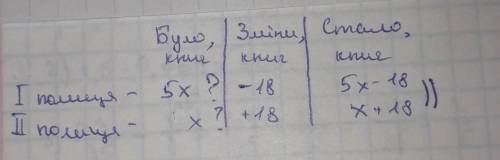 Було, Зміни, Стало,
книг книг книг
I полиця - 5x ? -18 5x-18
II полиця - x ? +18 x+18